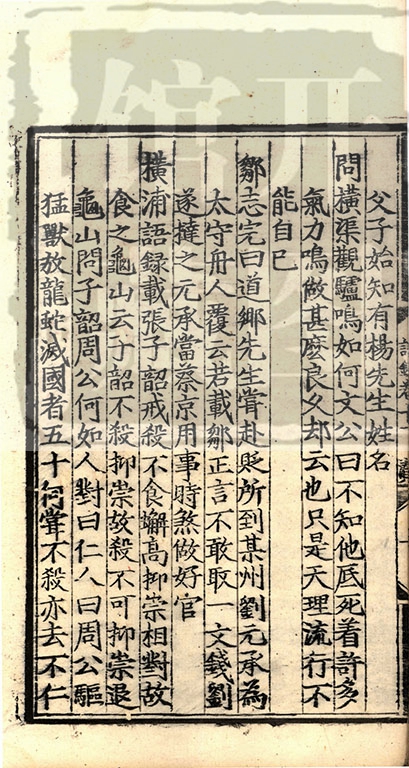 父子始知有楊先生姓名
問橫渠觀驢鳴如何文公曰不知他厎死着許多
氣力鳴做甚麽良久却云也只是天理流行不
能自已
鄒志完曰道鄉先生甞赴貶所到某州劉元承為
太守舟人覆云若載鄒正言不敢取一文錢劉
遂撻之元承當蔡京用事時煞做好官
橫浦語録載張子韶戒殺不食蠏高抑崇相對故
食之龜山云子韶不殺抑崇故殺不可抑崇退
龜山問子韶周公何如人對曰仁人曰周公驅
猛獸放龍蛇滅國者五十何甞不殺亦去不仁